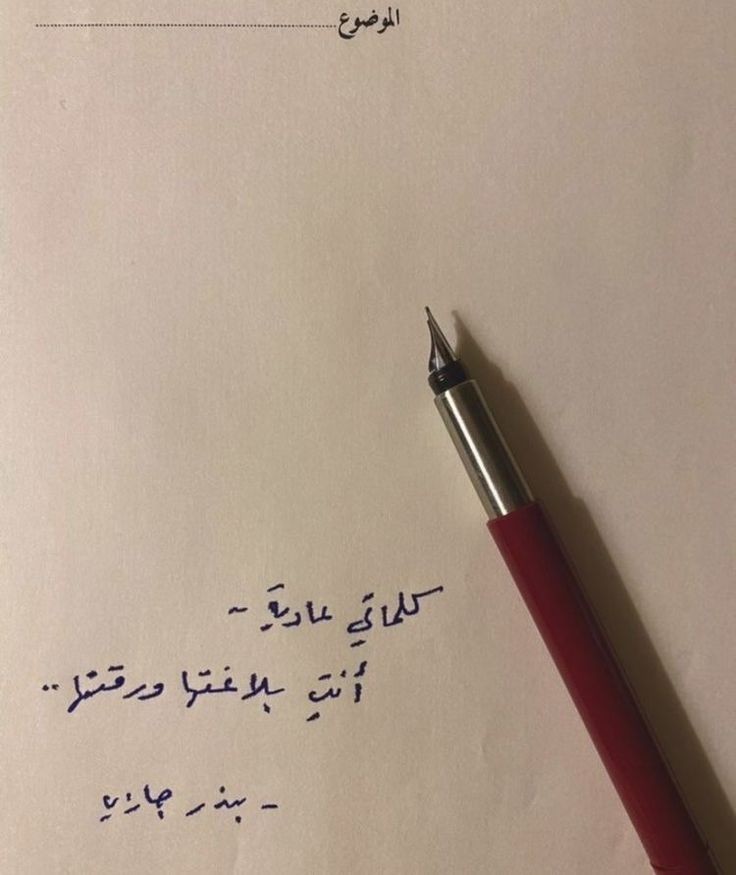 الموضوع ........................................
كلماتي عادية -
أنتِ بلاغتها ورقتها ..
- بندر